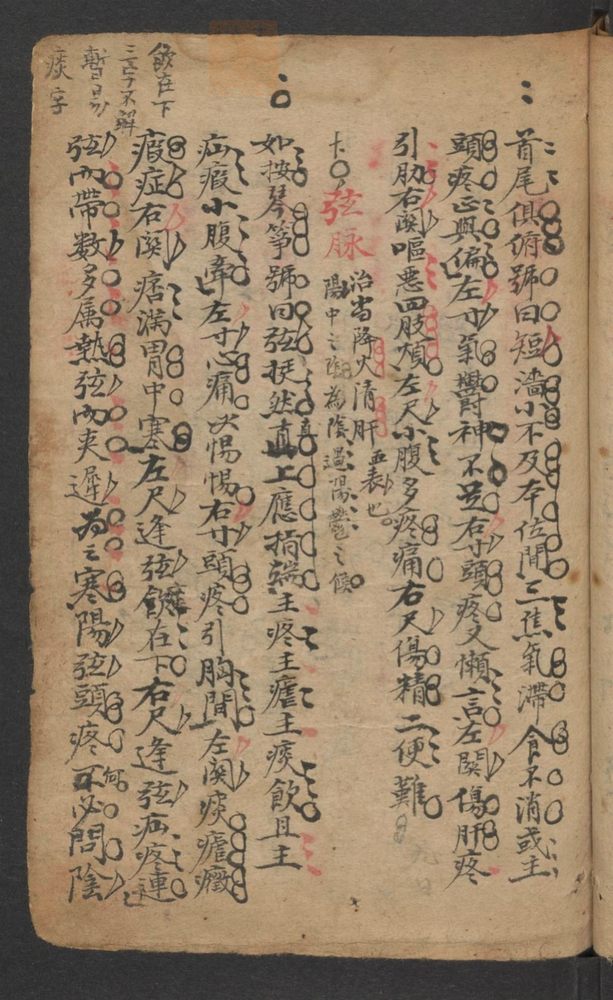 首尾俱俯號曰短濇小不及本位間三焦氣滯食不消或主
頭疼正與偏左寸氣鬱神不足右寸頭疼又懶言左関傷肝疼
引肋右関嘔惡四肢煩左尺小腹多疼痛右尺傷精二便難
弦脉
治當降火清肝
陽中之陰為陰
如按琴箏號曰弦挺然直上應指端主疼主瘧主痰飲且主
疝瘕小腹牽左寸心痛必惕惕右寸頭疼引胸間左関痰瘧癥
瘕症右関痞滿胃中寒左尺逢弦飲在下右尺逢弦疝疼連
弦而帶數多属熱弦而夹遲為之寒陽弦頭疼不必問陰
飲在下
三字不解
暫易
痰字